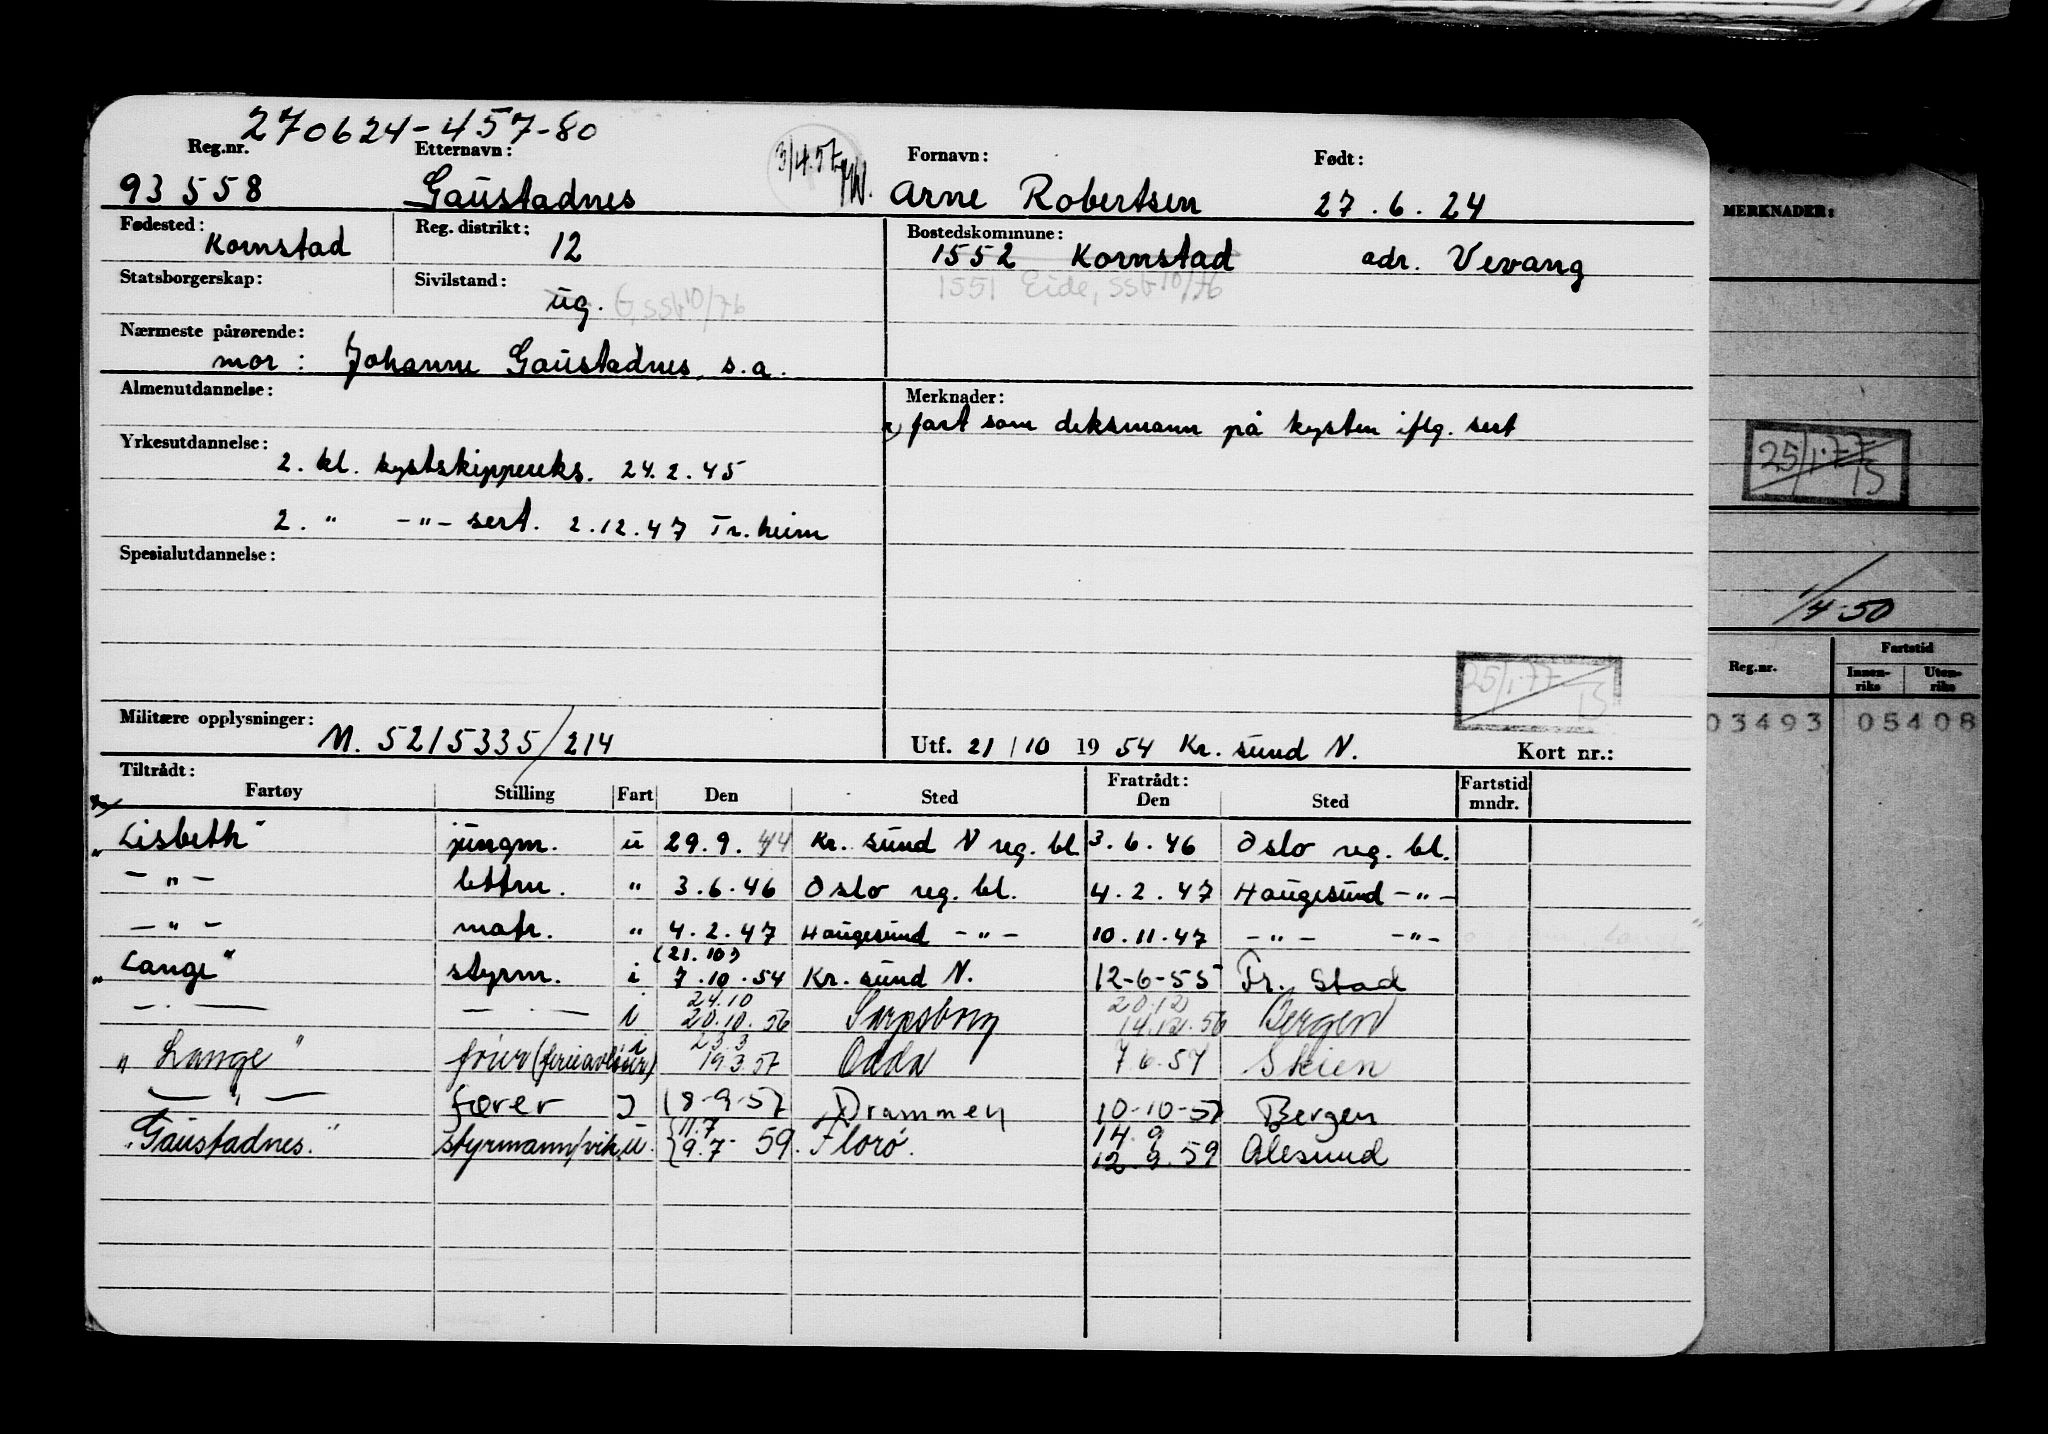 270624-457-80
Reg.nr. Etternavn: 3/4.57 Fornavn: Født:
93558 Gaustadnes Arne Robertsen 27.6.24
Fødested: Reg. distrikt: Bostedskommune:
Kornstad 12 1552 Kornstad adr. Vevang
Statsborgerskap: Sivilstand: 1551 Eide, SSB 10/76
ug. G, SSB 10/76
Nærmeste pårørende:
mor: Johanne Gaustadnes, s.a.
Almenutdannelse: Merknader:
x) fart som deksmann på kysten iflg. sert
Yrkesutdannelse:
2. kl. kystskippereks. 24.2.45
2. " -"- sert. 2.12.47 Tr.heim
Spesialutdannelse:
25/1.77
Militære opplysninger:
M. 5215335/214 Utf. 21/10 1954 Kr. sund N. Kort nr.:
Tiltrådt: Fratrådt: Fartstid
Fartøy Stilling Fart Den Sted Den Sted mndr.
"Lisbeth" jungm. u 29.9.44 Kr. sund N reg. bl. 3.6.46 Oslo reg. bl.
-"- lettm. " 3.6.46 Oslo reg. bl. 4.2.47 Haugesund -"-
-"- matr. " 4.2.47 Haugesund -"- 10.11.47 -"- -"-
(21.10)
"Lange" styrm. i 7.10.54 Kr. sund N. 12-6-55 Fr. Stad
24.10 20.12
-"- -"- i 20.10.56 Sarpsborg 14.12.56 Bergen
23.3
"Lange" fører (ferieavløser) i 19.3.57 Odda 7.6.57 Skien
-"- fører I 18-9-57 Drammen 10-10-57 Bergen
11.7 14.9
"Gaustadnes." styrmann/vik. u. 9.7-59. Florø. 12.9.59 Ålesund
MERKNADER:
25/1.77
1/4-50
Reg.nr. Fartstid
Innenriks Utenriks
03493 05408